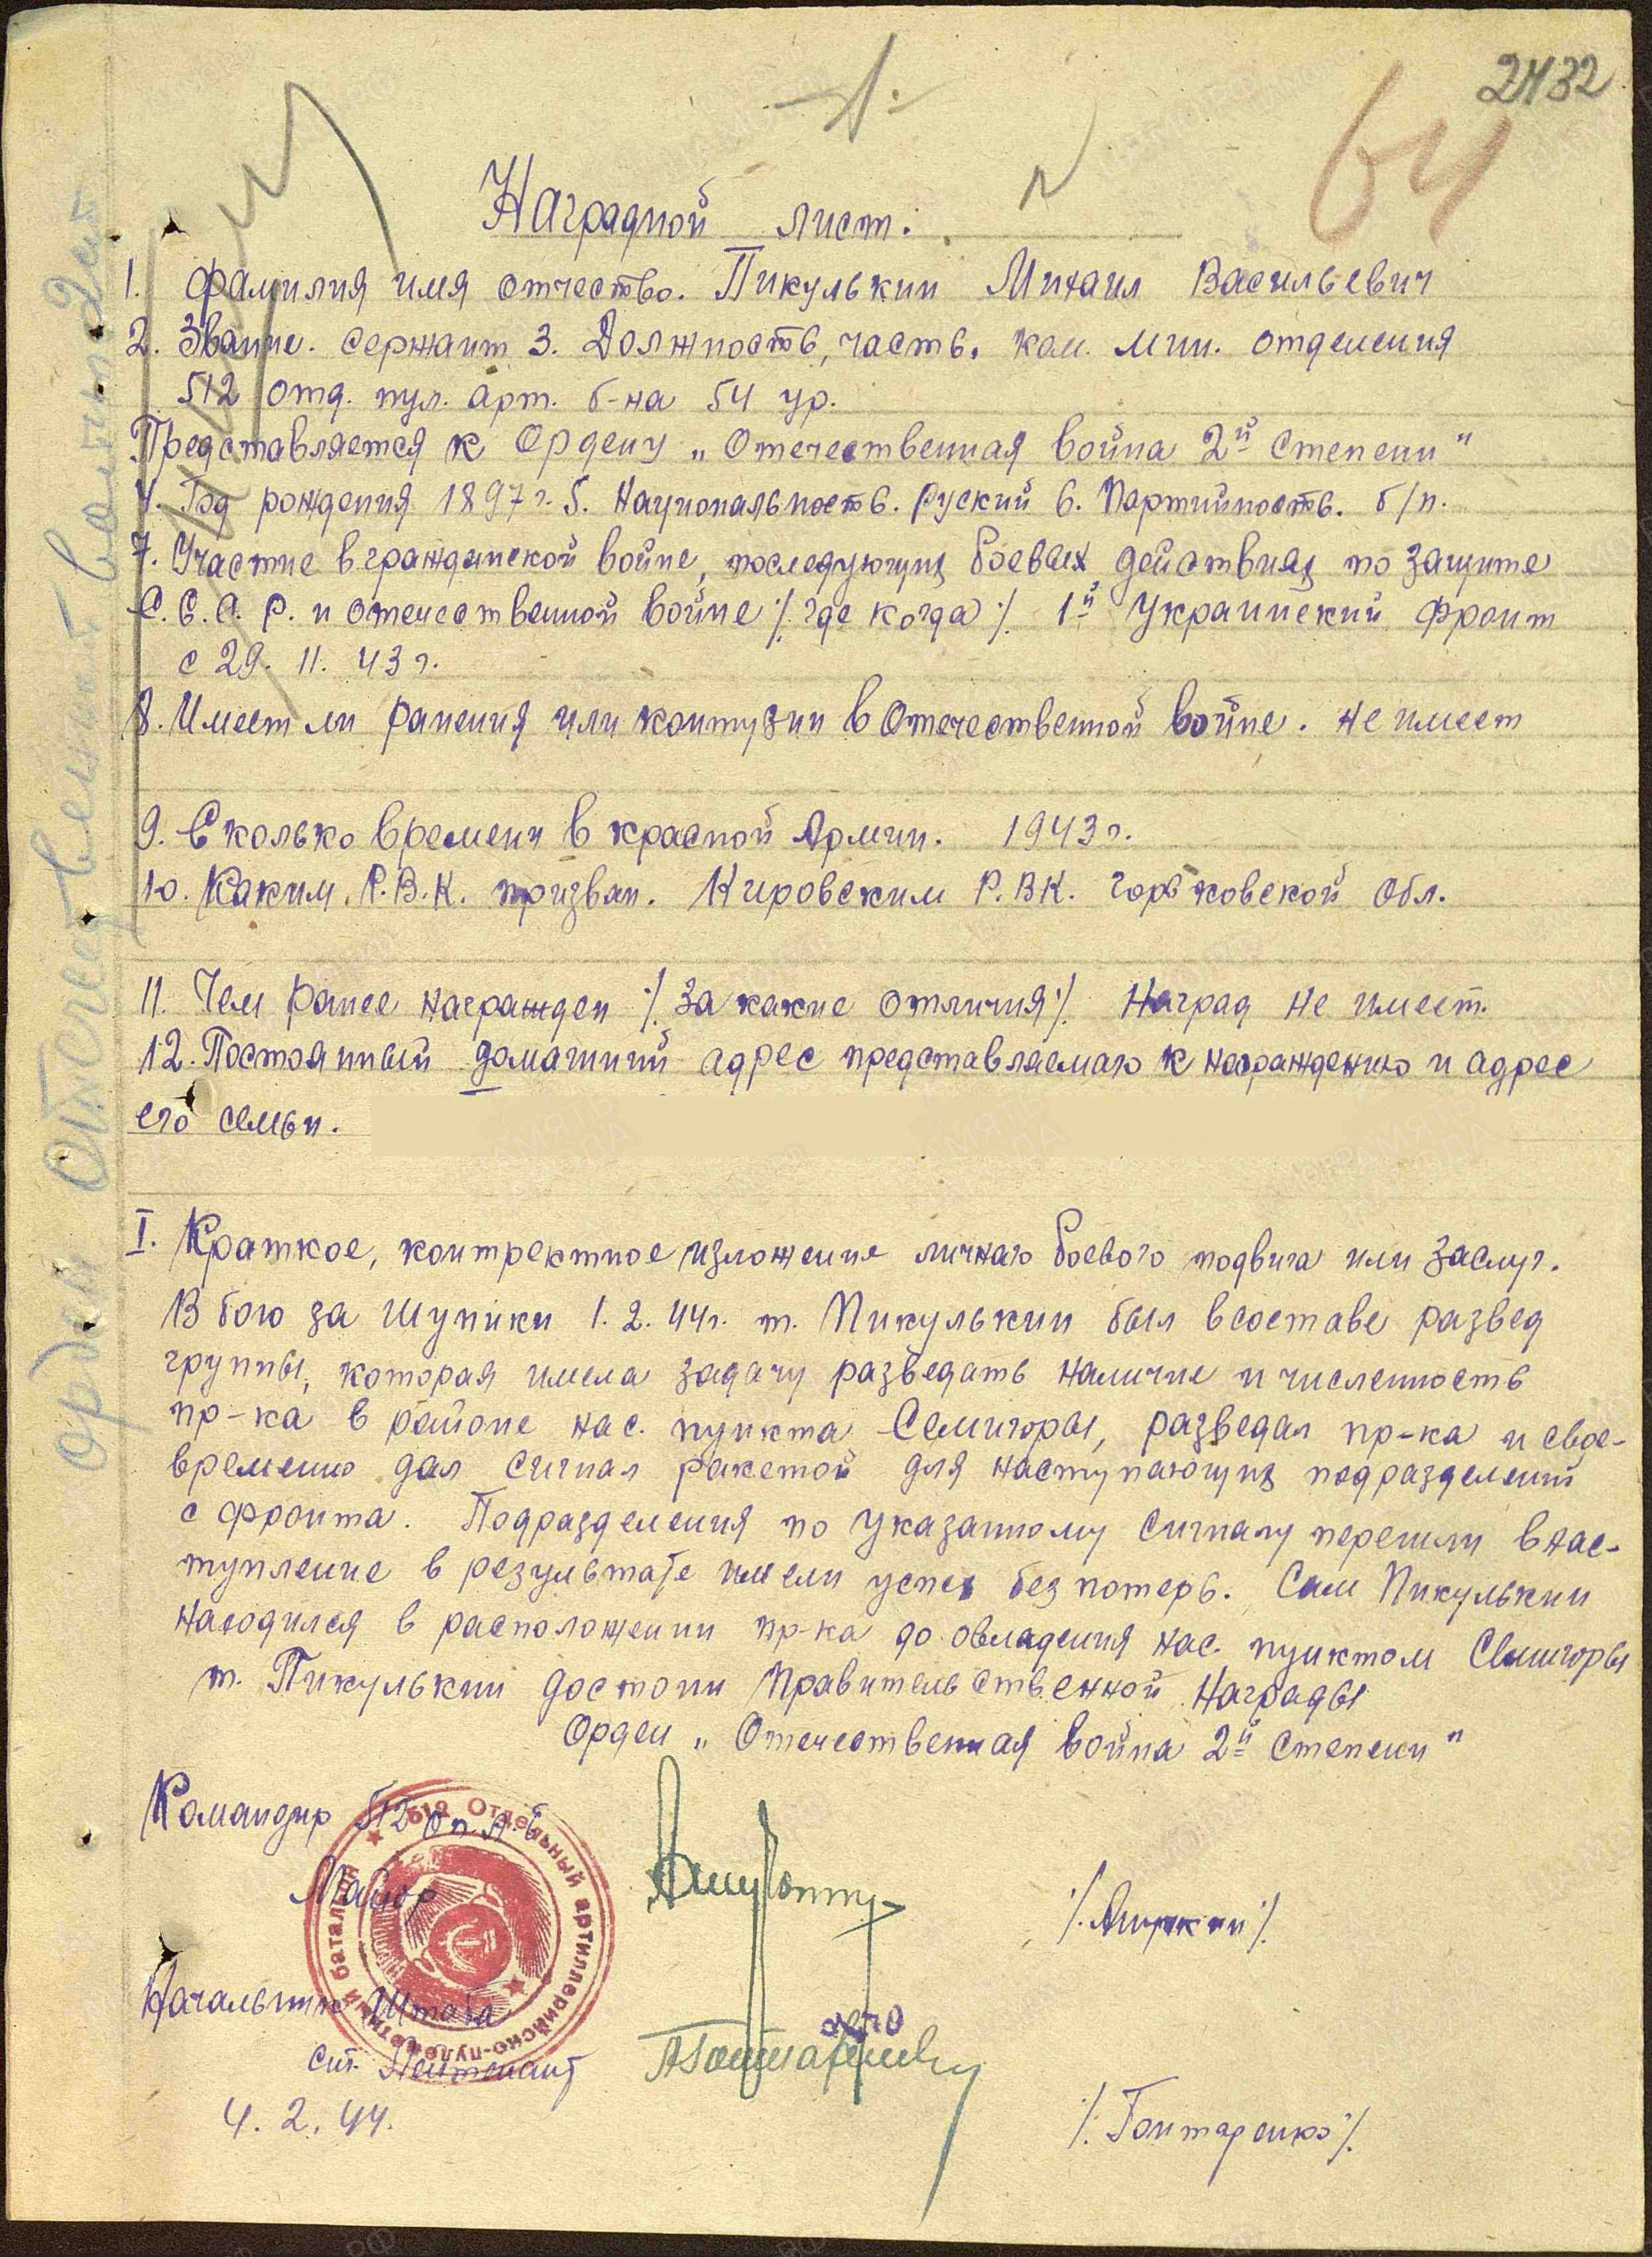 2432
64
Наградной лист.
1. Фамилия имя отчество. Пикулькин Михаил Васильевич
2. Звание. сержант 3. Должность, часть. ком. мин. отделения
512 отд. пул. арт. б-на 54 ур.
Представляется к Ордену „Отечественная война 2й степени"
4. Год рождения 1897 г. 5. Национальность. руский 6. Партийность. б/п.
7. Участие в гражданской войне, последующих боевых действиях по защите
С.С.С.Р. и отечественной войне /. где когда /. 1й Украинский фронт
с 29. 11. 43 г.
8. Имеет ли ранения или контузии в Отечественной войне. не имеет
9. Сколько времени в красной Армии. 1943 г.
10. Каким Р.В.К. призван. Кировским Р.В.К. горьковской обл.
11. Чем ранее награжден /. за какие отличия /. Наград не имеет.
12. Постоянный домашний адрес представляемаго к награждению и адрес
его семьи.
I. Краткое, контректное изложение личнаго боевого подвига или заслуг.
В бою за Шупики 1. 2. 44 г. т. Пикулькин был в составе развед
группы, которая имела задачу разведать наличие и численность
пр-ка в районе нас. пункта Семигоры, разведал пр-ка и свое-
временно дал сигнал ракетой для наступающих подразделений
с фронта. Подразделения по указанному сигналу перешли в нас-
тупление в результате имели успех без потерь. Сам Пикулькин
находился в расположении пр-ка до овладения нас. пунктом Семигоры
т. Пикулькин достоин Правительственной Награды
Орден „Отечественная война 2й степени"
Командир 512 оп.А.Б
Майор
Начальник Штаба
Ст. Лейтенант
/. Гонтаренко /.
4. 2. 44.
512 Отдельный артиллерийско-пулеметный батальон
Орден Отечественной войны 2 ст